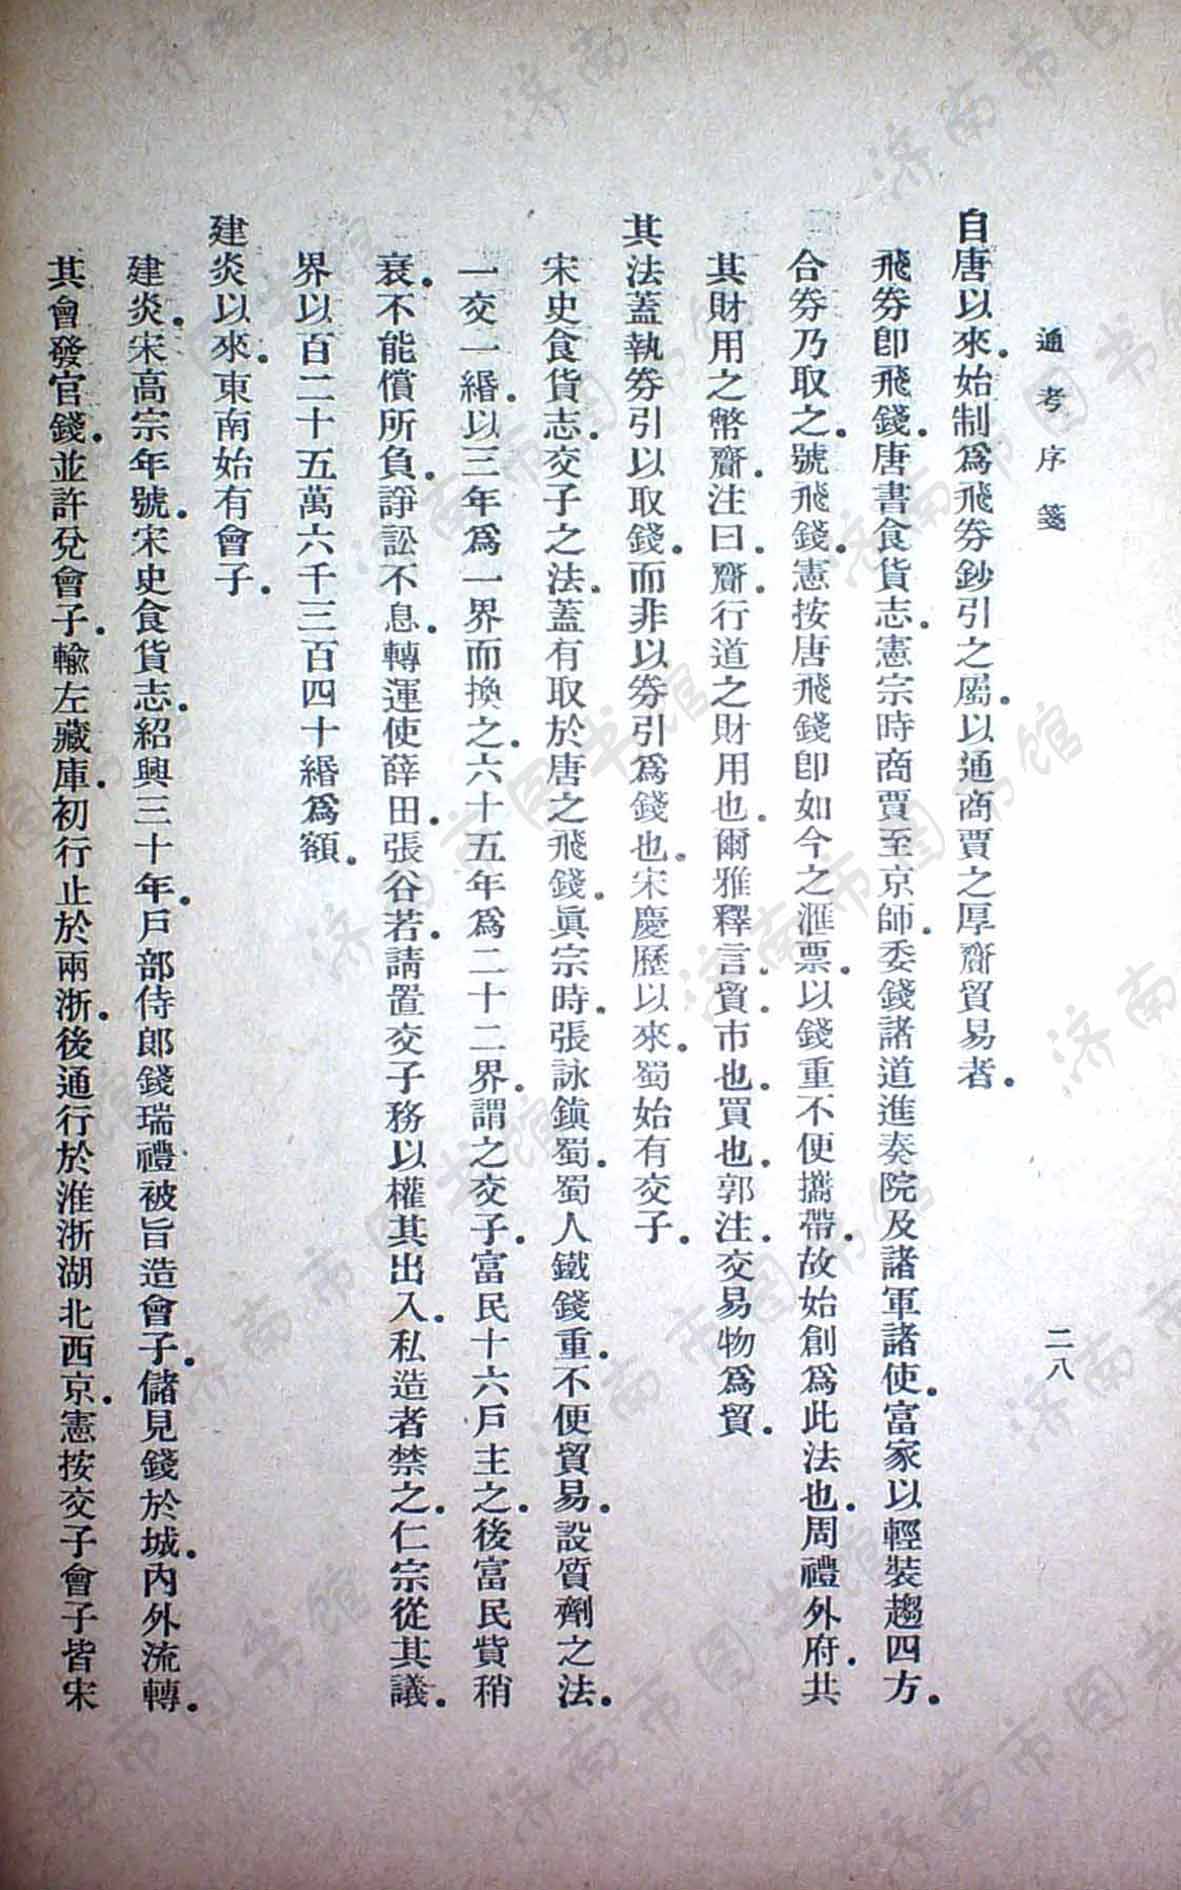 通考序箋
二八
自唐以來。始制爲飛券鈔引之屬。以通商賈之厚齎貿易者。
飛券卽飛錢。唐書食貨志。憲宗時商賈至京師。委錢諸道進奏院及諸軍諸使。富家以輕裝趨四方。
合券乃取之。號飛錢。憲按唐飛錢卽如今之滙票。以錢重不便攜帶。故始創爲此法也。周禮外府。共
其財用之幣齎。注曰。齎。行道之財用也。爾雅釋言。貿。市也。買也。郭注。交易物爲貿。
其法蓋執券引以取錢。而非以券引爲錢也。宋慶歷以來。蜀始有交子。
宋史食貨志。交子之法。蓋有取於唐之飛錢。眞宗時。張詠鎮蜀。蜀人鐵錢重。不便貿易。設質劑之法。
一交一緡。以三年爲一界而換之。六十五年爲二十二界。謂之交子。富民十六戶主之。後富民貲稍
衰。不能償所負。諍訟不息。轉運使薛田。張谷若。請置交子務以權其出入。私造者禁之。仁宗從其議。
界以百二十五萬六千三百四十緡爲額。
建炎以來。東南始有會子。
建炎。宋高宗年號。宋史食貨志。紹興三十年。戶部侍郎錢瑞禮被旨造會子。儲見錢於城。內外流轉。
其會發官錢。並許兌會子。輸左藏庫。初行止於兩浙。後通行於淮浙湖北西京。憲按交子會子皆宋
济南市图书馆